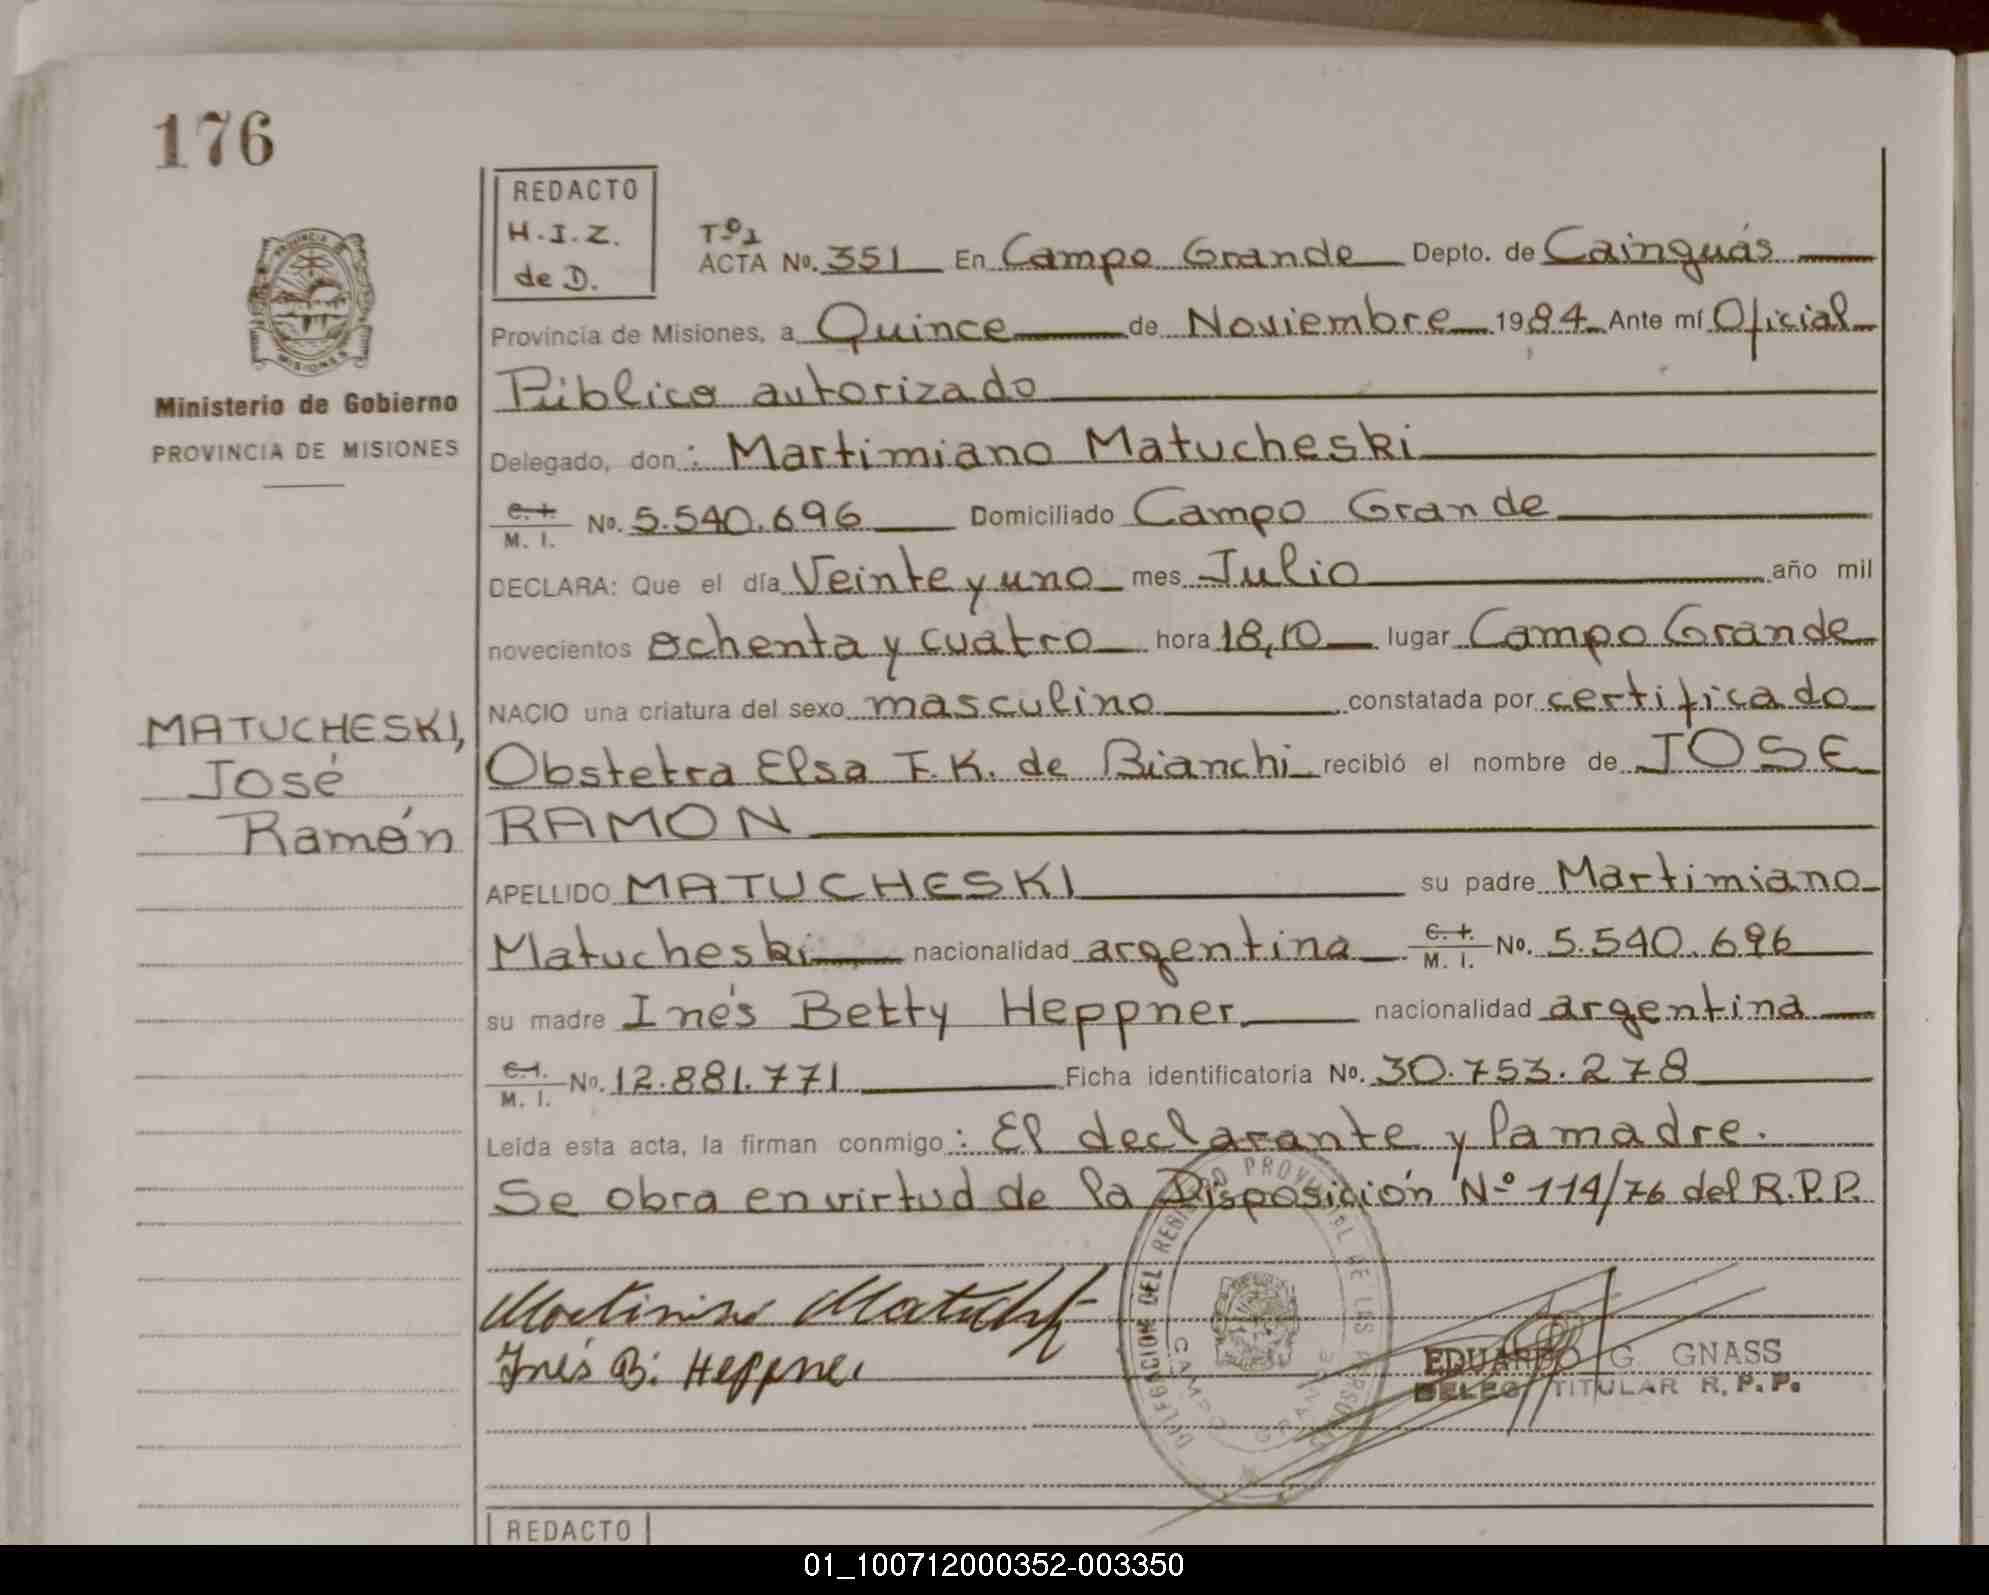 176
REDACTO
H.I.Z.
de D.
Tº1
ACTA No. 351 En Campo Grande Depto. de Cainguás
Provincia de Misiones, a Quince de Noviembre 1984 Ante mí Oficial
Público autorizado
Delegado, don: Martimiano Matucheski
C. I. M. I. No. 5.540.696 Domiciliado Campo Grande
DECLARA: Que el día Veinte y uno mes Julio año mil
novecientos ochenta y cuatro hora 18,10 lugar Campo Grande
NACIO una criatura del sexo masculino constatada por certificado
Obstetra Elsa F. K. de Bianchi recibió el nombre de JOSE
RAMON
APELLIDO MATUCHESKI su padre Martimiano
Matucheski nacionalidad argentina C. I. M. I. No. 5.540.696
su madre Inés Betty Heppner nacionalidad argentina
C. I. M. I. No. 12.881.771 Ficha identificatoria No. 30.753.278
Leída esta acta, la firman conmigo: El declarante y la madre.
Se obra en virtud de la Disposición Nº 114/76 del R.P.P.
PROVINCIA DE MISIONES
Ministerio de Gobierno
PROVINCIA DE MISIONES
MATUCHESKI,
José
Ramón
Inés B. Heppner
DELEGACION DEL REGISTRO PROVINCIAL DE LAS PERSONAS
CAMPO GRANDE
EDUARDO G. GNASS
DELEG. TITULAR R. P. P.
REDACTO
01_100712000352-003350